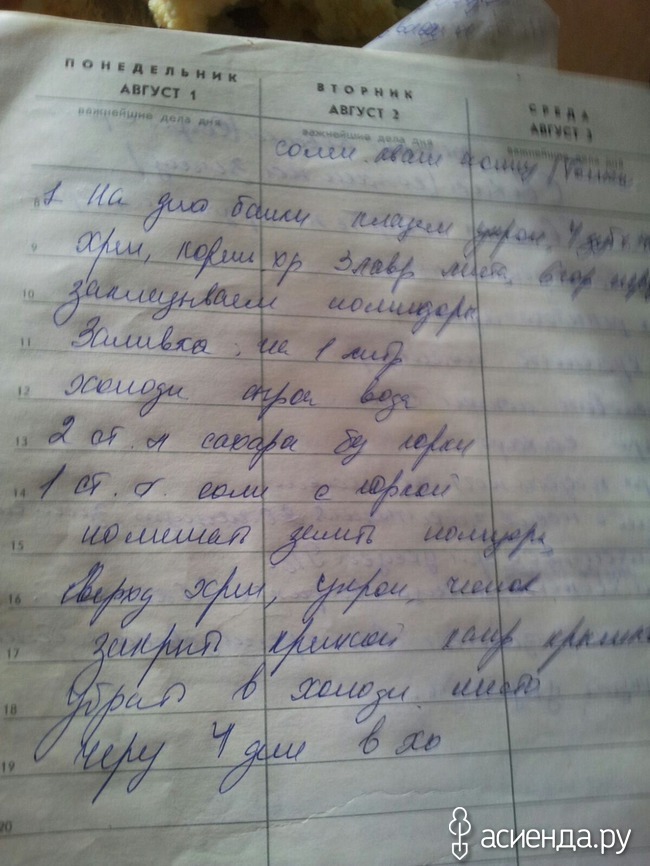 ПОНЕДЕЛЬНИК ВТОРНИК СРЕДА
АВГУСТ 1 АВГУСТ 2 АВГУСТ 3
важнейшие дела дня важнейшие дела дня важнейшие дела дня
солен. кваш
8 1 На дно банки укроп, 4
9 Хрен, 3 лавр листа, 6 гор
10 помидоры
11 Заливка: на 1 литр
12 холодн сырая вода
13 2 ст. л сахара без горки
14 1 ст. л. соли с горкой
15 помешать залить помидоры
16 Сверху хрен, укроп, чеснок
17 закрыть крышкой капр крышк
18 Убрать в холодн. место
19 Через 4 дня в хо
20
асиенда.ру